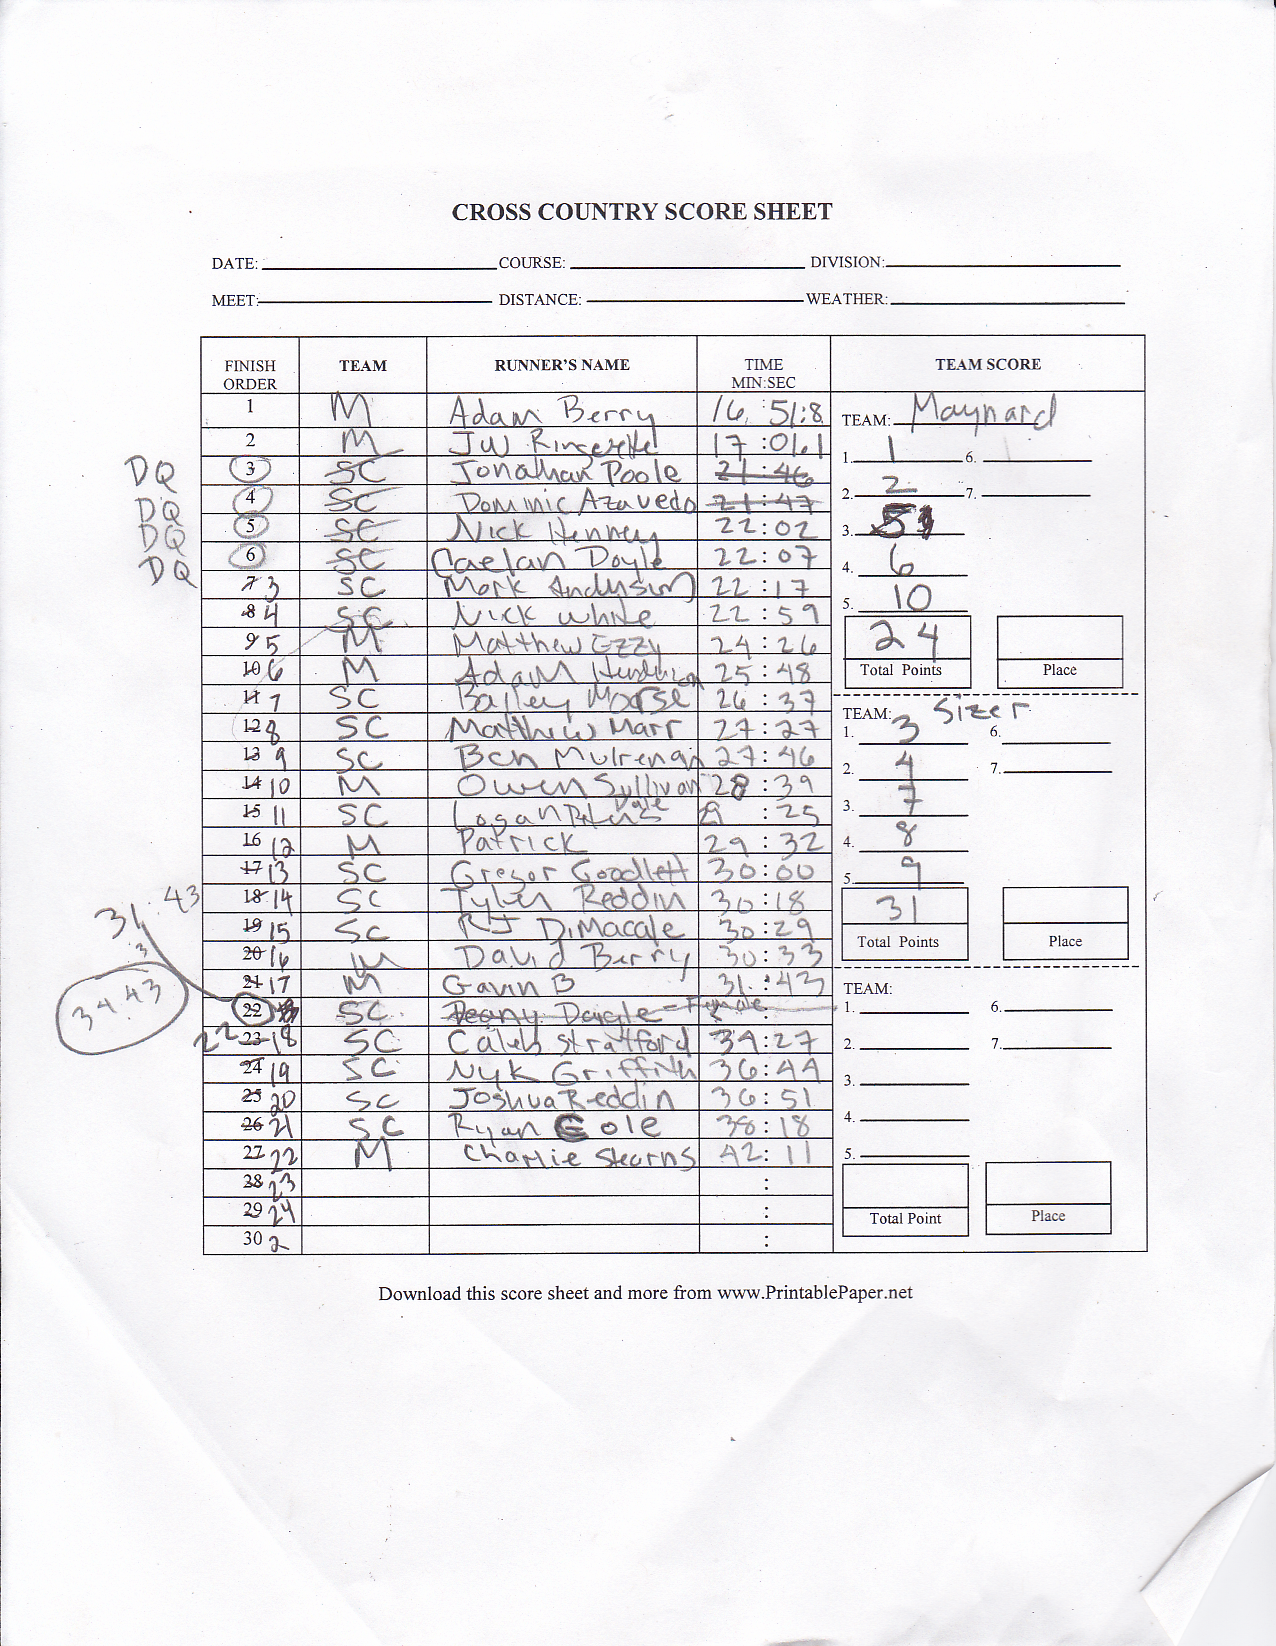 CROSS COUNTRY SCORE SHEET
DATE: COURSE: DIVISION:
MEET: DISTANCE: WEATHER:
FINISH ORDER TEAM RUNNER'S NAME TIME MIN:SEC TEAM SCORE
1 M Adam Berry 16:51:8
2 M JW 17:01.1
DQ 3 SC Jonathan Poole 21:46
DQ 4 SC Dominic Azavedo 21:47
DQ 5 SC Nick Henney 22:02
DQ 6 SC Caelan Doyle 22:07
7 3 SC Mark 22:17
8 4 SC Nick White 22:59
9 5 M Matthew Ezzy 24:26
10 6 M Adam 25:48
11 7 SC Bailey Morse 26:37
12 8 SC Matthew Marr 27:27
13 9 SC Ben Mulrenan 27:46
14 10 M Owen Sullivan 28:39
15 11 SC Logan :25
16 12 M Patrick 29:32
17 13 SC Gregor Goodlett 30:00
18 14 SC Tyler Reddin 30:18
19 15 SC RJ DiMacale 30:29
20 16 M David Berry 30:33
21 17 M Gavin B 31:43
22 SC Daigle - Female :
22 23 18 SC Caleb Stratford 34:27
24 19 SC Nyk Griffith 36:44
25 20 SC Joshua Reddin 36:51
26 21 SC Ryan Cole 38:18
27 22 M Charlie Stearns 42:11
28 23 :
29 24 :
30 2 :
31.43
3
34.43
TEAM: Maynard
1. 1 6.
2. 2 7.
3. 5
4. 6
5. 10
24
Total Points Place
TEAM: Sizer
1. 3 6.
2. 4 7.
3. 7
4. 8
5. 9
31
Total Points Place
TEAM:
1. 6.
2. 7.
3.
4.
5.
Total Point Place
Download this score sheet and more from www.PrintablePaper.net